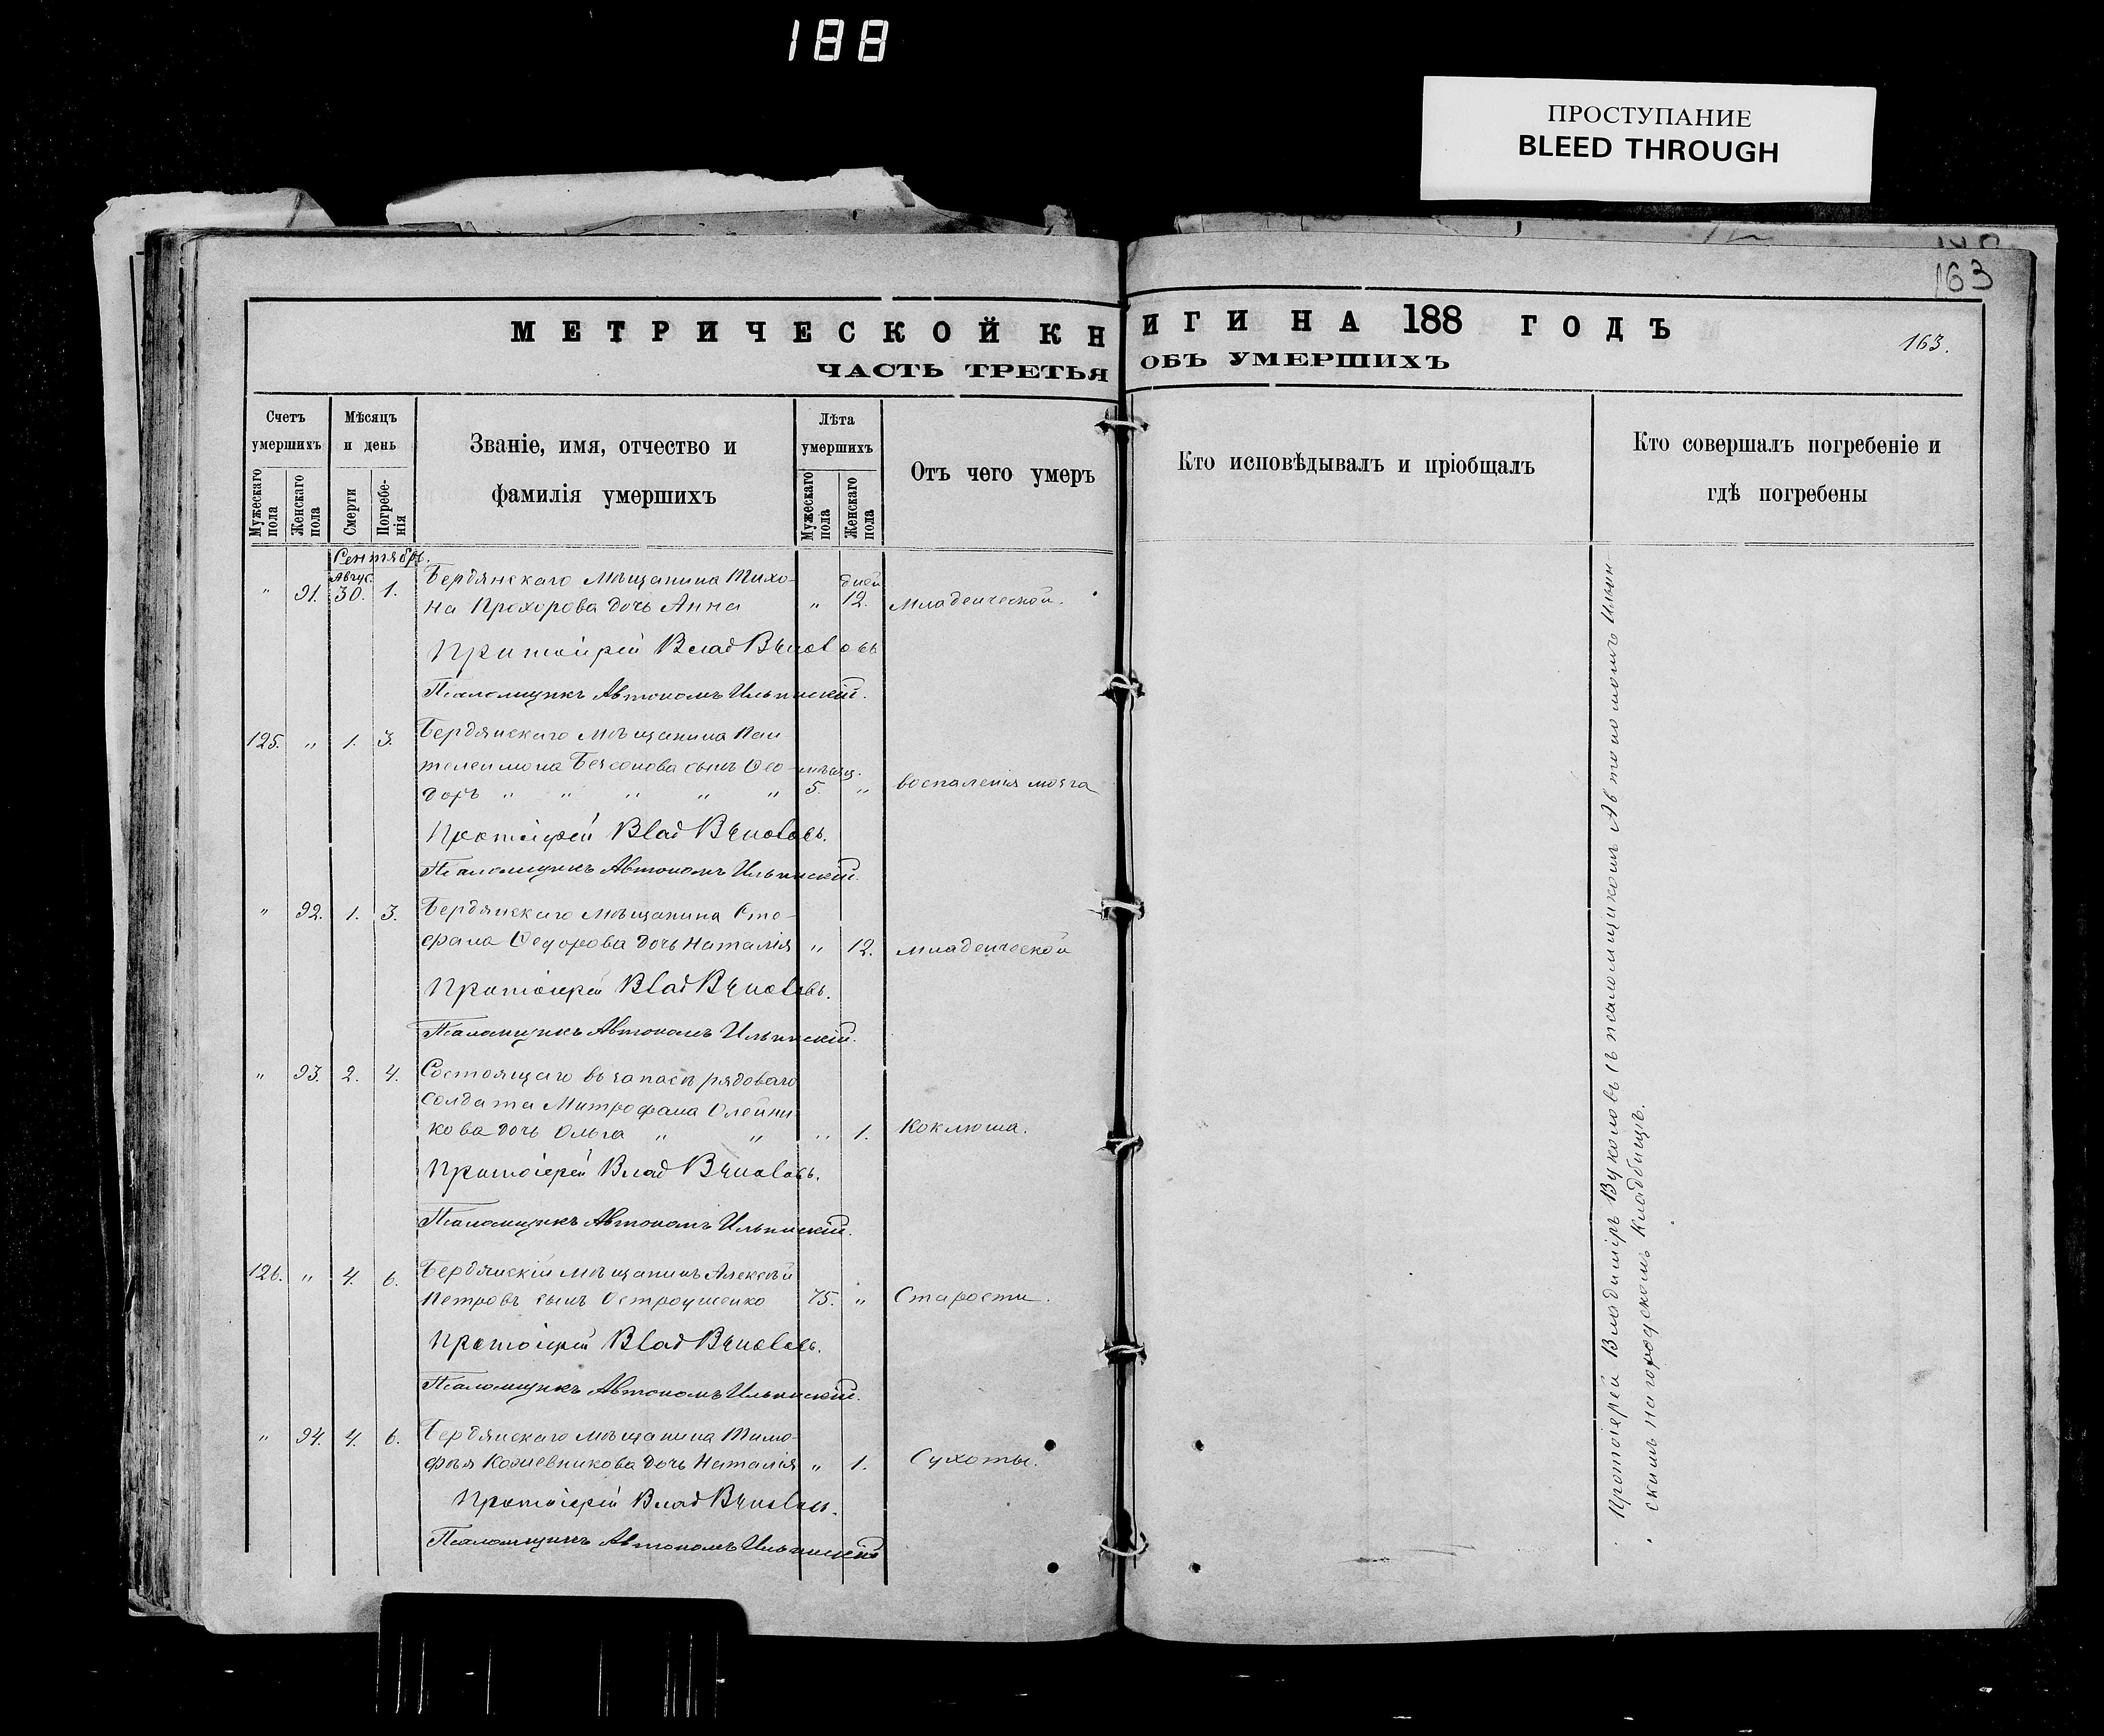 188
ПРОСТУПАНИЕ
BLEED THROUGH
163
МЕТРИЧЕСКОЙ КНИГИ НА 188 ГОДЪ
163.
ЧАСТЬ ТРЕТЬЯ ОБЪ УМЕРШИХЪ
Счетъ умершихъ
Мужескаго пола
Женскаго пола
Мѣсяцъ и день
Смерти
Погребе-
нія
Званіе, имя, отчество и
фамилія умершихъ
Лѣта умершихъ
Мужескаго пола
Женскаго пола
Отъ чего умеръ
Кто исповѣдывалъ и пріобщалъ
Кто совершалъ погребеніе и
гдѣ погребены
Сентябрь.
Авгус. дней
" 91. 30. 1. Бердянскаго Мѣщанина Тихо-
на Прохорова дочь Анна " 12. Младенческой.
Протоіерей Влад Вуколовъ
Псаломщикъ Автономъ Ильинскій.
125. " 1. 3. Бердянскаго Мѣщанина Пан
телеимона Безсонова сынъ Ѳео- мѣсяц.
доръ " " " " " 5. " воспаленія мозга
Протоіерей Влад Вуколовъ.
Псаломщикъ Автономъ Ильинскій.
" 92. 1. 3. Бердянскаго Мѣщанина Сте-
фана Ѳедорова дочь Наталія " 12. младенческой
Протоіерей Влад Вуколовъ.
Псаломщикъ Автономъ Ильинскій.
" 93. 2. 4. Состоящаго въ запасѣ рядоваго
солдата Митрофана Олейни
кова дочь Ольга " " " 1. Коклюша.
Протоіерей Влад Вуколовъ.
Псаломщикъ Автономъ Ильинскій.
126. " 4. 6. Бердянскій мѣщанинъ Алексѣй
Петровъ сынъ Остроушенко 75. " Старости.
Протоіерей Влад Вуколовъ.
Псаломщикъ Автономъ Ильинскій.
" 94. 4. 6. Бердянскаго мѣщанина Тимо-
фѣя Кожевникова дочь Наталія " 1. Сухоты.
Протоіерей Влад Вуколовъ.
Псаломщикъ Автономъ Ильинскій
Протоіерей Владиміръ Вуколовъ съ псаломщикомъ Автономомъ Ильин-
скимъ на городскомъ кладбищѣ.